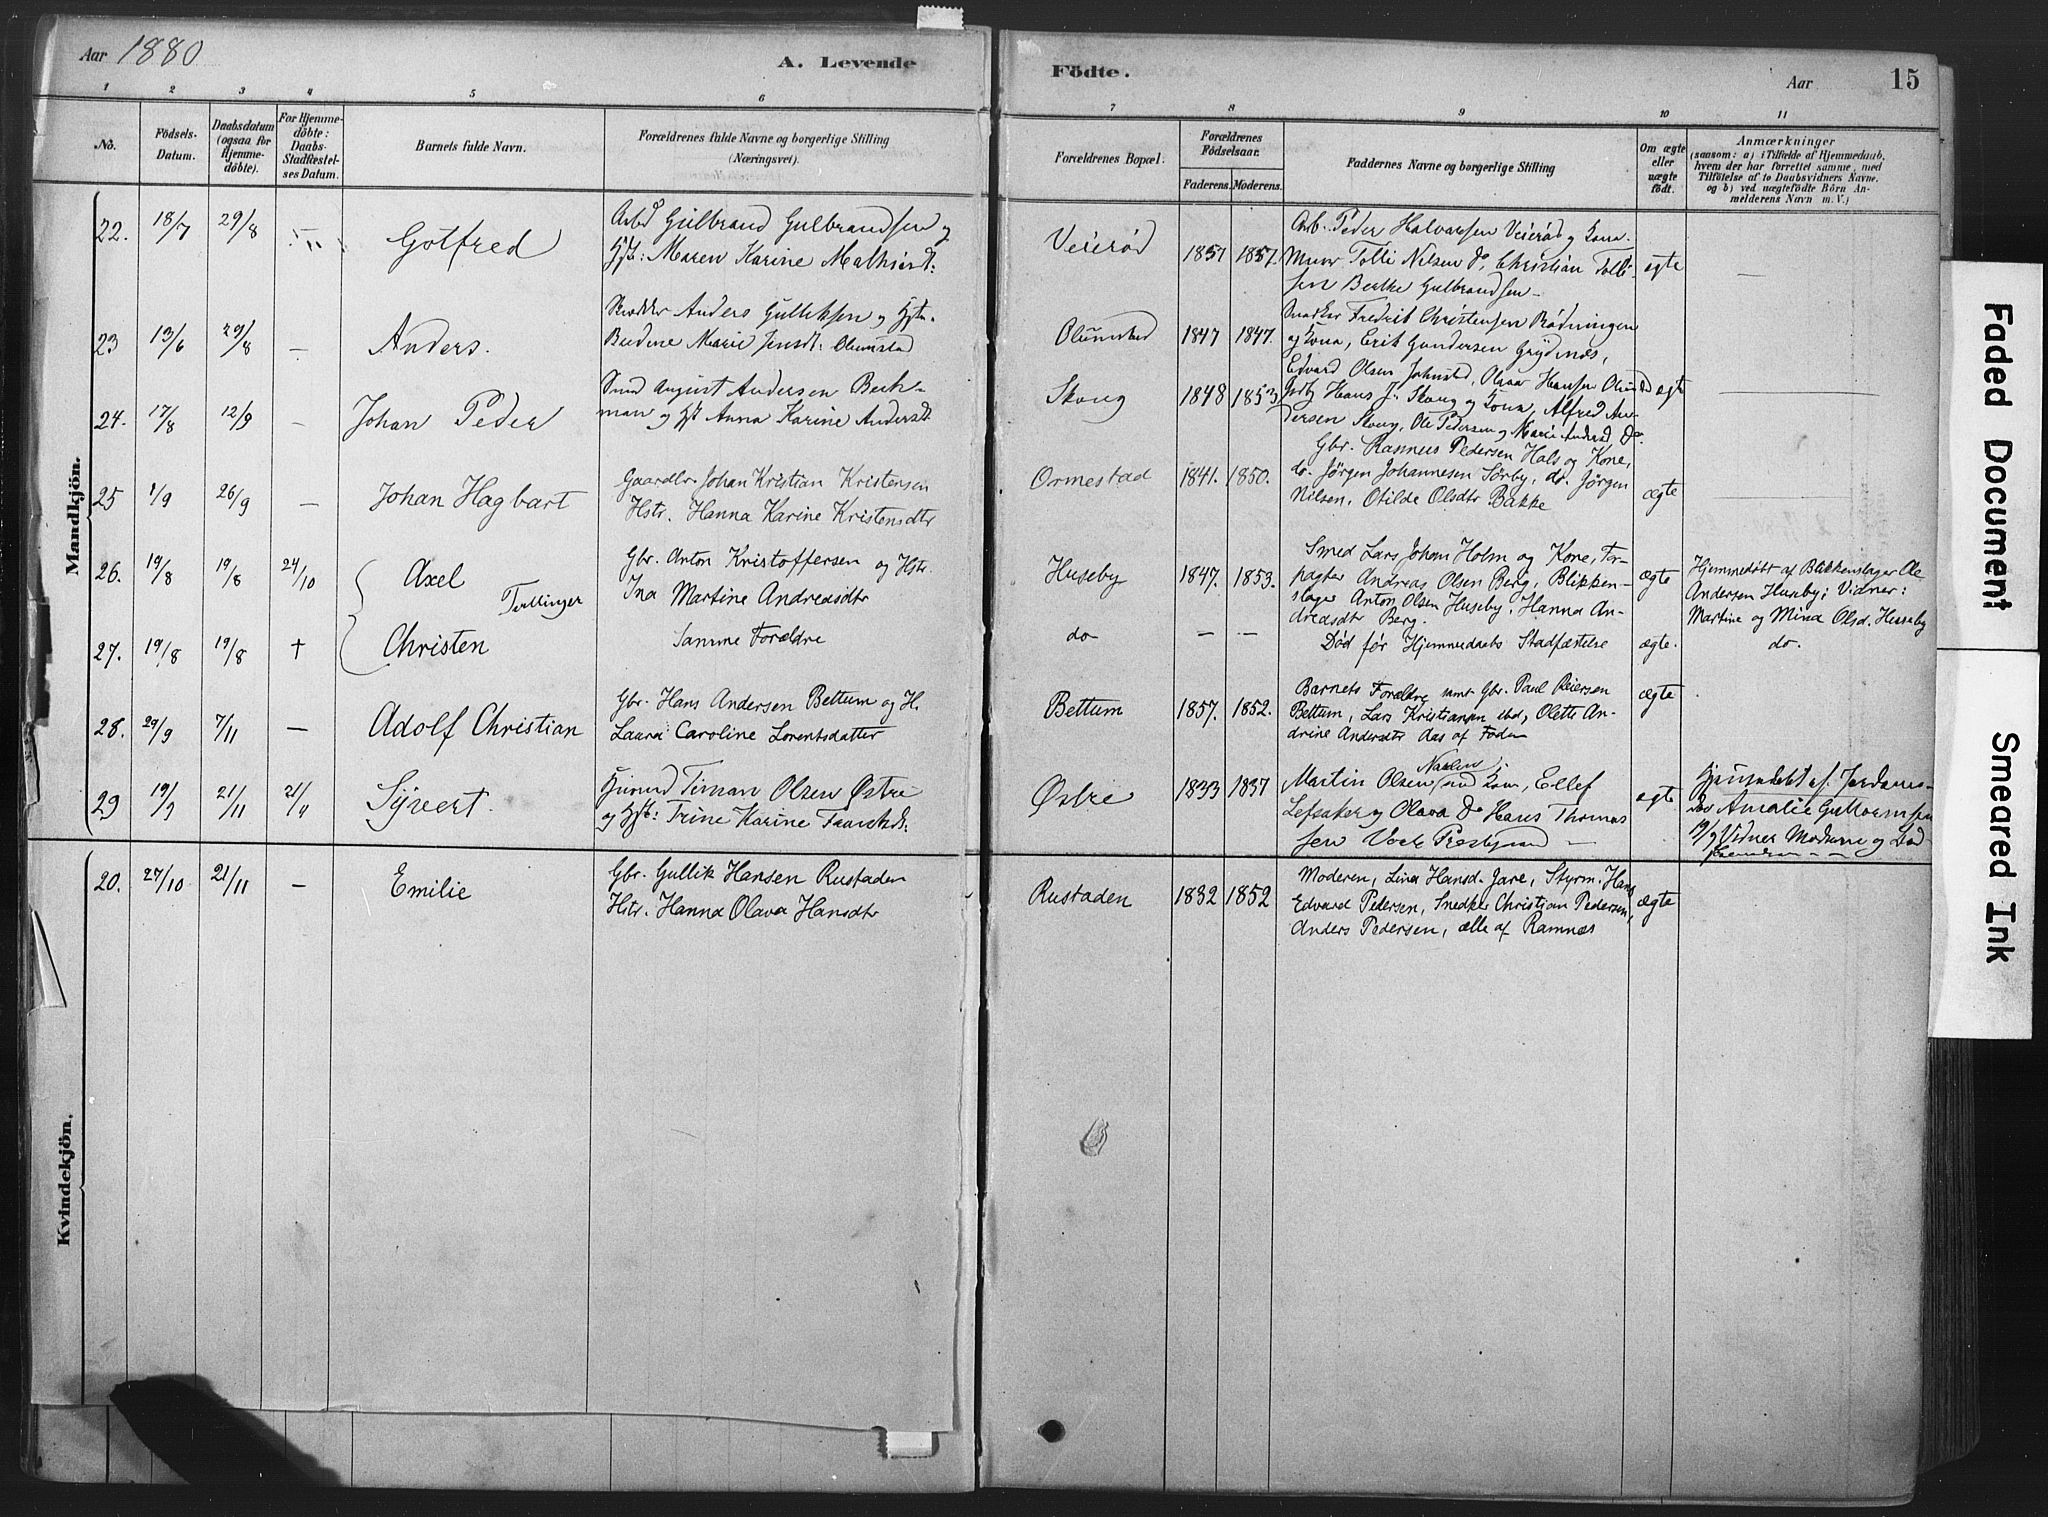 Aar 1880
A. Levende
Födte.
Aar
15
1 2 3 4 5 6 7 8 9 10 11
No.
Födsels-
Datum.
Daabsdatum
(ogsaa for
Hjemme-
döbte).
For Hjemme-
döbte:
Daabs-
Stadfæstel-
ses Datum.
Barnets fulde Navn.
Forældrenes fulde Navne og borgerlige Stilling
(Næringsvei).
Forældrenes Bopæl.
Forældrenes
Födselsaar.
Faderens. Moderens.
Faddernes Navne og borgerlige Stilling
Om ægte
eller
uægte
födt.
Anmærkninger
(saasom: a) i Tilfælde af Hjemmedaab,
hvem der har forrettet samme, med
Tilföielse af to Daabsvidners Navne,
og b) ved uægtefödte Börn An-
melderens Navn m. V.)
Mandkjön.
22. 18/7 29/8
Gotfred
Arbd Gulbrand Gulbrandsen og
Hst: Maren Karine Mathisdt:
Veierød
1857 1857.
Arb. Peder Halvorsen Veierød og Kona
Murer Tolli Nilsen do, Christian Tolli-
sen Berthe Gulbrandsen
ægte
—
23 13/6 29/8 —
Anders.
Skrædder Anders Gulliksen og Hst.
Marie Jensdt: Olumstad
Olumstad
1847 1847.
Snedker Fredrik Christensen Rødningen
og Kona, Erik Gundersen Grydnæs,
Edvard Olsen
24. 17/8 12/9 —
Johan Peder
Smed August Andersen Beck-
man og Hst Anna Karine Andersdt
Skoug
1848 1853
Hans J. Skoug og Kona, Alfred An-
dersen Skoug, Ole Pedersen og Marie Andersd do
ægte
25 1/9 26/9 —
Johan Hagbart
Gaardbr. Johan Kristian Kristensen
Hstr. Hanna Karine Kristensdtr
Ormestad
1841. 1850.
Gbr. Rasmus Pedersen Hals og Kone,
do. Jørgen Johannesen Sörby, do. Jørgen
Nilsen, Otilde Olsdtr Bakke
ægte
26. 19/8 19/8 24/10
Axel
Tvillinger
Gbr. Anton Kristoffersen og Hstr.
Ina Martine Andreasdtr
Huseby
1847. 1853.
Smed Lars Johan Holm og Kone, For-
pagter Andreas Olsen Berg, Blikken-
slager Anton Olsen Huseby, Hanna An-
dreasdtr Berg.
ægte
Hjemmedøbt af Blikkenslager Ole
Andersen Huseby; Vidner:
Martine og Mina Olsd. Huseby
27. 19/8 19/8 †
Christen
Samme Forældre
do — —
Død før Hjemmedaabs Stadfæstelse
ægte.
do.
28. 29/9 7/11 —
Adolf Christian
Gbr. Hans Andersen Bettum og H.
Laura Caroline Lorentsdatter
Bettum
1857. 1852.
Barnets Forældre samt Gbr. Paul Reiersen
Bettum, Lars Kristiansen ibd, Olette An-
drine Andersdtr das af Foden
ægte
29 19/9 21/11 21/11
Syvert
Timan Olsen Østre
og Hst: Trine Karine
Østre
1833 1837
Martin Olsen med Kone, Ellef
Lefsaker og Olava do Hans Thomas
sen
ægte
Hjemmedøbt af Jordemo-
der Amalie Guttormsen
19/9 Vidner Moderen og
Kvindekjön.
20. 27/10 21/11 —
Emilie
Gbr. Gullik Hansen Rustaden
Hstr. Hanna Olava Hansdtr
Rustaden
1832 1852
Moderen, Lina Hansd. Jare, Styrm. Hans
Edvard Pedersen, Snedker Christian Pedersen,
Anders Pedersen, alle af Ramnæs
ægte
Faded Document
Smeared Ink